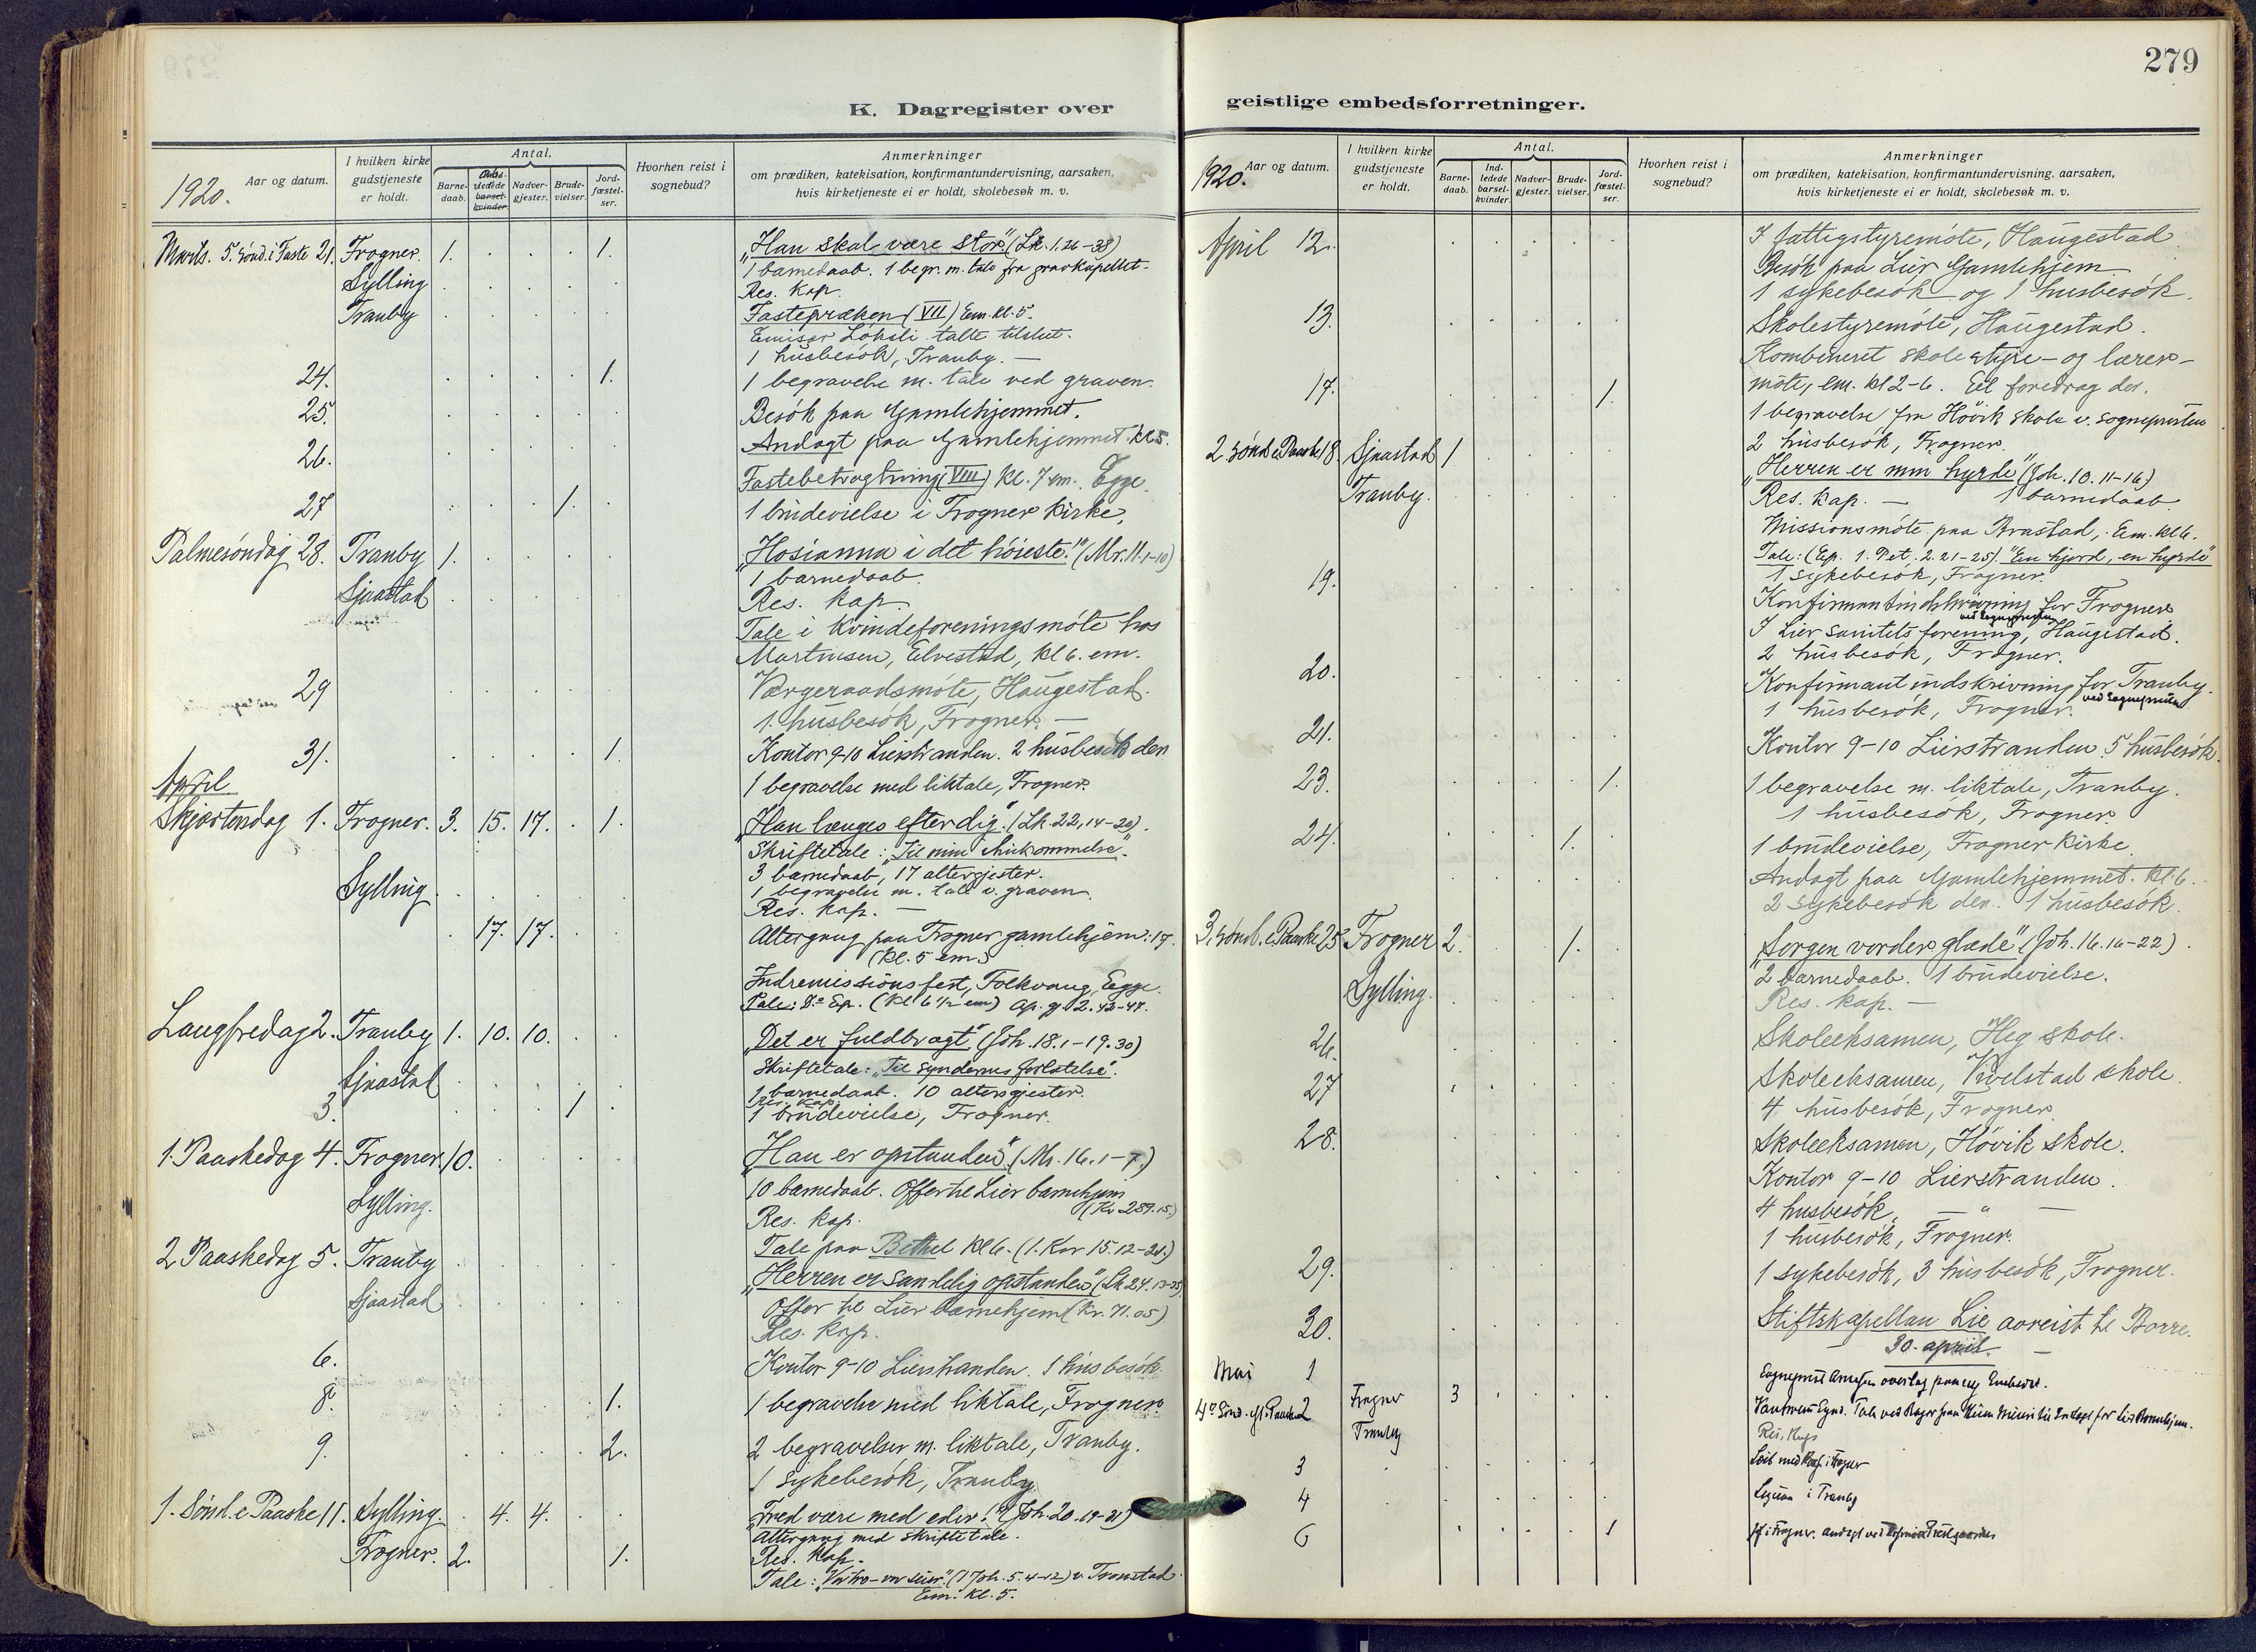 279
K. Dagregister over
geistlige embedsforretninger.
1920. Aar og datum.
I hvilken kirke gudstjeneste er holdt.
Antal.
Barne-daab.
Nadver-gjester.
Brude-vielser.
Jord-fæstel-ser.
Hvorhen reist i sognebud?
Anmerkninger
om prædiken, katekisation, konfirmantundervisning, aarsaken,
hvis kirketjeneste ei er holdt, skolebesøk m. v.
Marts. 5. sønd. i Faste 21. Frogner. 1. 1. "Han skal være stor". (Lk. 1.26-38)
1 barnedaab. 1 begr. m. tale fra gravkapellet.
Sylling Res. kap.
Tranby Fastepræken (VII) Em. kl. 5.
Emisær talte tilslut.
1 husbesøk, Tranby. —
24. 1. 1 begravelse m. tale ved graven.
25. Besøk paa Gamlehjemmet.
Andagt paa Gamlehjemmet. kl 5.
26. Fastebetragtning (VIII) kl. 7 em. Egge.
27 1. 1 brudevielse i Frogner kirke.
Palmesøndag 28. Tranby 1. "Hosianna i det høieste!" (Mr. 11.1-10)
1 barnedaab.
Sjaastad Res. kap.
Tale i Kvindeforeningsmøte hos
Martinsen, Elvestad, kl 6. em.
29 Værgeraadsmøte, Haugestad.
1. husbesøk, Frogner. —
31. 1. Kontor 9-10 Lierstranden. 2 husbesøk der.
1 begravelse med liktale, Frogner.
April
Skjærtorsdag 1. Frogner. 3. 15. 17. 1. "Han længes efter dig". (Lk. 22, 14-20).
Skriftetale: "Til min ihukommelse".
3 barnedaab, 17 altergjester.
1 begravelse m. tale v. graven.
Sylling. Res. kap. —
17. 17. Altergang paa Frogner gamlehjem: 17.
(kl. 5 em.)
Indremissionsfest, Folkvang, Egge.
Tale: (kl 6 1/2 em) Ap. gj 2. 42-47.
Langfredag 2. Tranby 1. 10. 10. "Det er fuldbragt" (Joh. 18.1-19.30)
Skriftetale: "Til syndernes forlatelse".
1 barnedaab. 10 altergjester.
Sjaastad Res. kap.
3. 1 1 brudevielse, Frogner.
1. Paaskedag 4. Frogner. 10. "Han er opstanden". (Mr. 16.1-7.)
10 barnedaab. Offer til Lier barnehjem
(Kr. 289.15.)
Sylling. Res. kap.
Tale paa Bethel kl 6. (1. Kor 15.12-21.)
2 Paaskedag 5. Tranby "Herren er sandelig opstanden" (Lk 24. 13-35)
Offer til Lier barnehjem (Kr. 71.05)
Sjaastad Res. kap.
6. Kontor 9-10 Lierstranden. 1 husbesøk.
8. 1. 1 begravelse med liktale, Frogner.
9. 2. 2 begravelser m. liktale, Tranby.
1 sykebesøk, Tranby
1. Sønd. e Paaske 11. Sylling. 4. 4. "Fred være med eder!" (Joh. 20. 19-31)
Altergang med skriftetale.
Frogner. 2. 1. Res. kap.
Tale: "Vor tro - vor seier". (1 Joh. 5. 4-12) v. Tronstad.
Em. kl. 5.
1920. Aar og datum.
I hvilken kirke gudstjeneste er holdt.
Antal.
Barne-daab.
Ind-ledede barsel-kvinder.
Nadver-gjester.
Brude-vielser.
Jord-fæstel-ser.
Hvorhen reist i sognebud?
Anmerkninger
om prædiken, katekisation, konfirmantundervisning. aarsaken,
hvis kirketjeneste ei er holdt, skolebesøk m. v.
April 12. I fattigstyremøte, Haugestad.
Besøk paa Lier Gamlehjem
1 sykebesøk og 1 husbesøk.
13. Skolestyremøte, Haugestad.
Kombineret skolestyre- og lærer-
møte, em. kl 2-6. Et foredrag der.
17. 1. 1 begravelse fra Høvik skole v. sognepresten
2 husbesøk, Frogner.
2 sønd e Paaske 18. Sjaastad 1 "Herren er min hyrde" (Joh. 10. 11-16)
Tranby. Res. kap. — 1 barnedaab.
Missionsmøte paa Brastad, Em. kl 6.
Tale: (Ep. 1. Pet. 2. 21-25). "En hjord, en hyrde"
1 sykebesøk, Frogner.
19. Konfirmantindskrivning for Frogner
ved Sognepresten
I Lier Sanitetsforening, Haugestad.
2 husbesøk, Frogner.
20. Konfirmantindskrivning for Tranby.
ved Sognepresten
1 husbesøk, Frogner.
21. Kontor 9-10 Lierstranden 5 husbesøk.
23. 1. 1 begravelse m. liktale, Tranby.
1 husbesøk, Frogner.
24. 1. 1 brudevielse, Frogner kirke.
Andagt paa Gamlehjemmet. kl. 6.
2 sykebesøk der. 1 husbesøk.
3. sønd. e. Paaske 25. Frogner 2. 1. "Sorgen vorder glæde". (Joh. 16. 16-22).
2 barnedaab. 1 brudevielse.
Sylling. Res. kap. —
26. Skoleeksamen, Heg skole.
27 Skoleeksamen, Kvelstad skole.
4 husbesøk, Frogner.
28. Skoleeksamen, Høvik skole.
Kontor 9-10 Lierstranden.
4 husbesøk, — " —
1 husbesøk, Frogner.
29. 1 sykebesøk, 3 husbesøk, Frogner.
30. Stiftskapellan Lie avreist til Borre.
30. april. —
Mai 1 Sogneprest overtog paany Embedet.
4de Sønd. eft. Paaske 2 Frogner 3
Tranby Res. Kap.
3
4 i Tranby
6 1